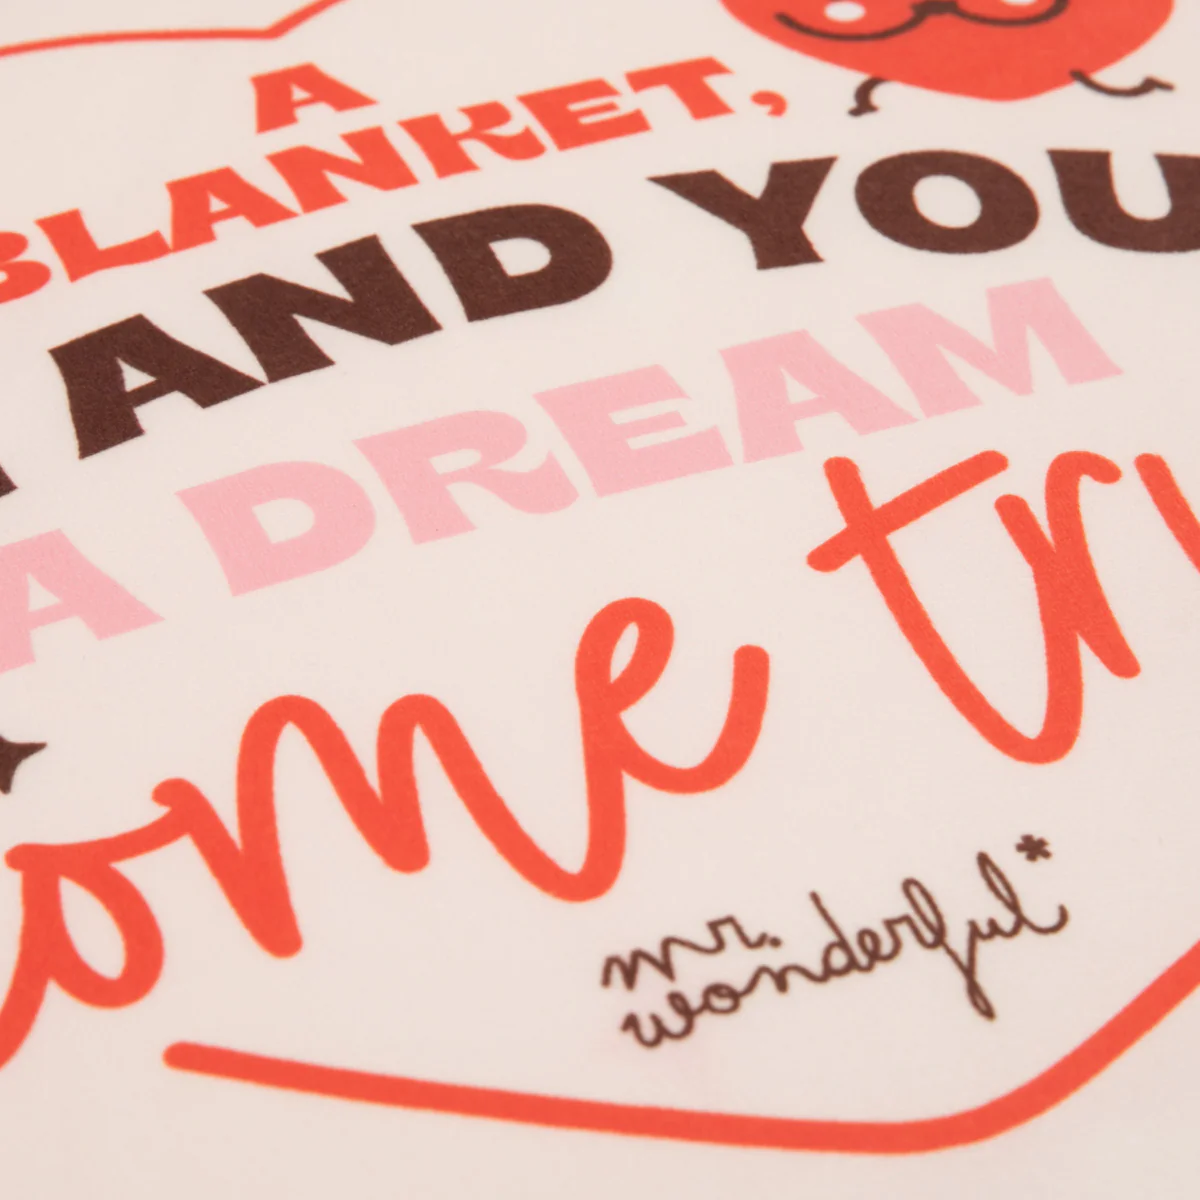 A
BLANKET,
AND YOU
A DREAM
ome tru
mr.
wonderful*